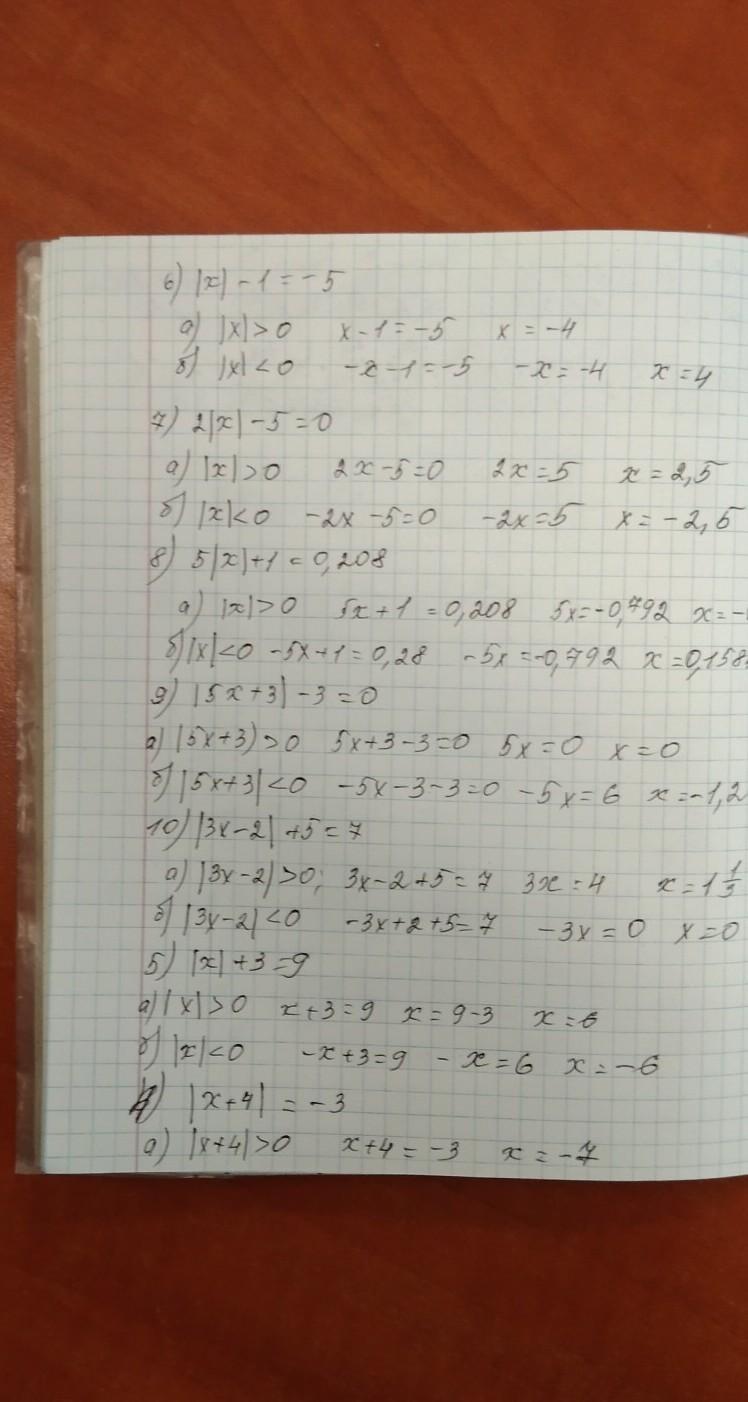 6) |x| - 1 = -5
а) |x| > 0 x - 1 = -5 x = -4
б) |x| < 0 -x - 1 = -5 -x = -4 x = 4
7) 2|x| - 5 = 0
а) |x| > 0 2x - 5 = 0 2x = 5 x = 2,5
б) |x| < 0 -2x - 5 = 0 -2x = 5 x = -2,5
8) 5|x| + 1 = 0,208
а) |x| > 0 5x + 1 = 0,208 5x = -0,792 x = -
б) |x| < 0 -5x + 1 = 0,28 -5x = -0,792 x = 0,158
9) |5x + 3| - 3 = 0
а) |5x + 3) > 0 5x + 3 - 3 = 0 5x = 0 x = 0
б) |5x + 3| < 0 -5x - 3 - 3 = 0 -5x = 6 x = -1,2
10) |3x - 2| + 5 = 7
а) |3x - 2| > 0; 3x - 2 + 5 = 7 3x = 4 x = 1 1/3
б) |3x - 2| < 0 -3x + 2 + 5 = 7 -3x = 0 x = 0
5) |x| + 3 = 9
а) |x| > 0 x + 3 = 9 x = 9 - 3 x = 6
б) |x| < 0 -x + 3 = 9 -x = 6 x = -6
4) |x + 4| = -3
а) |x + 4| > 0 x + 4 = -3 x = -7